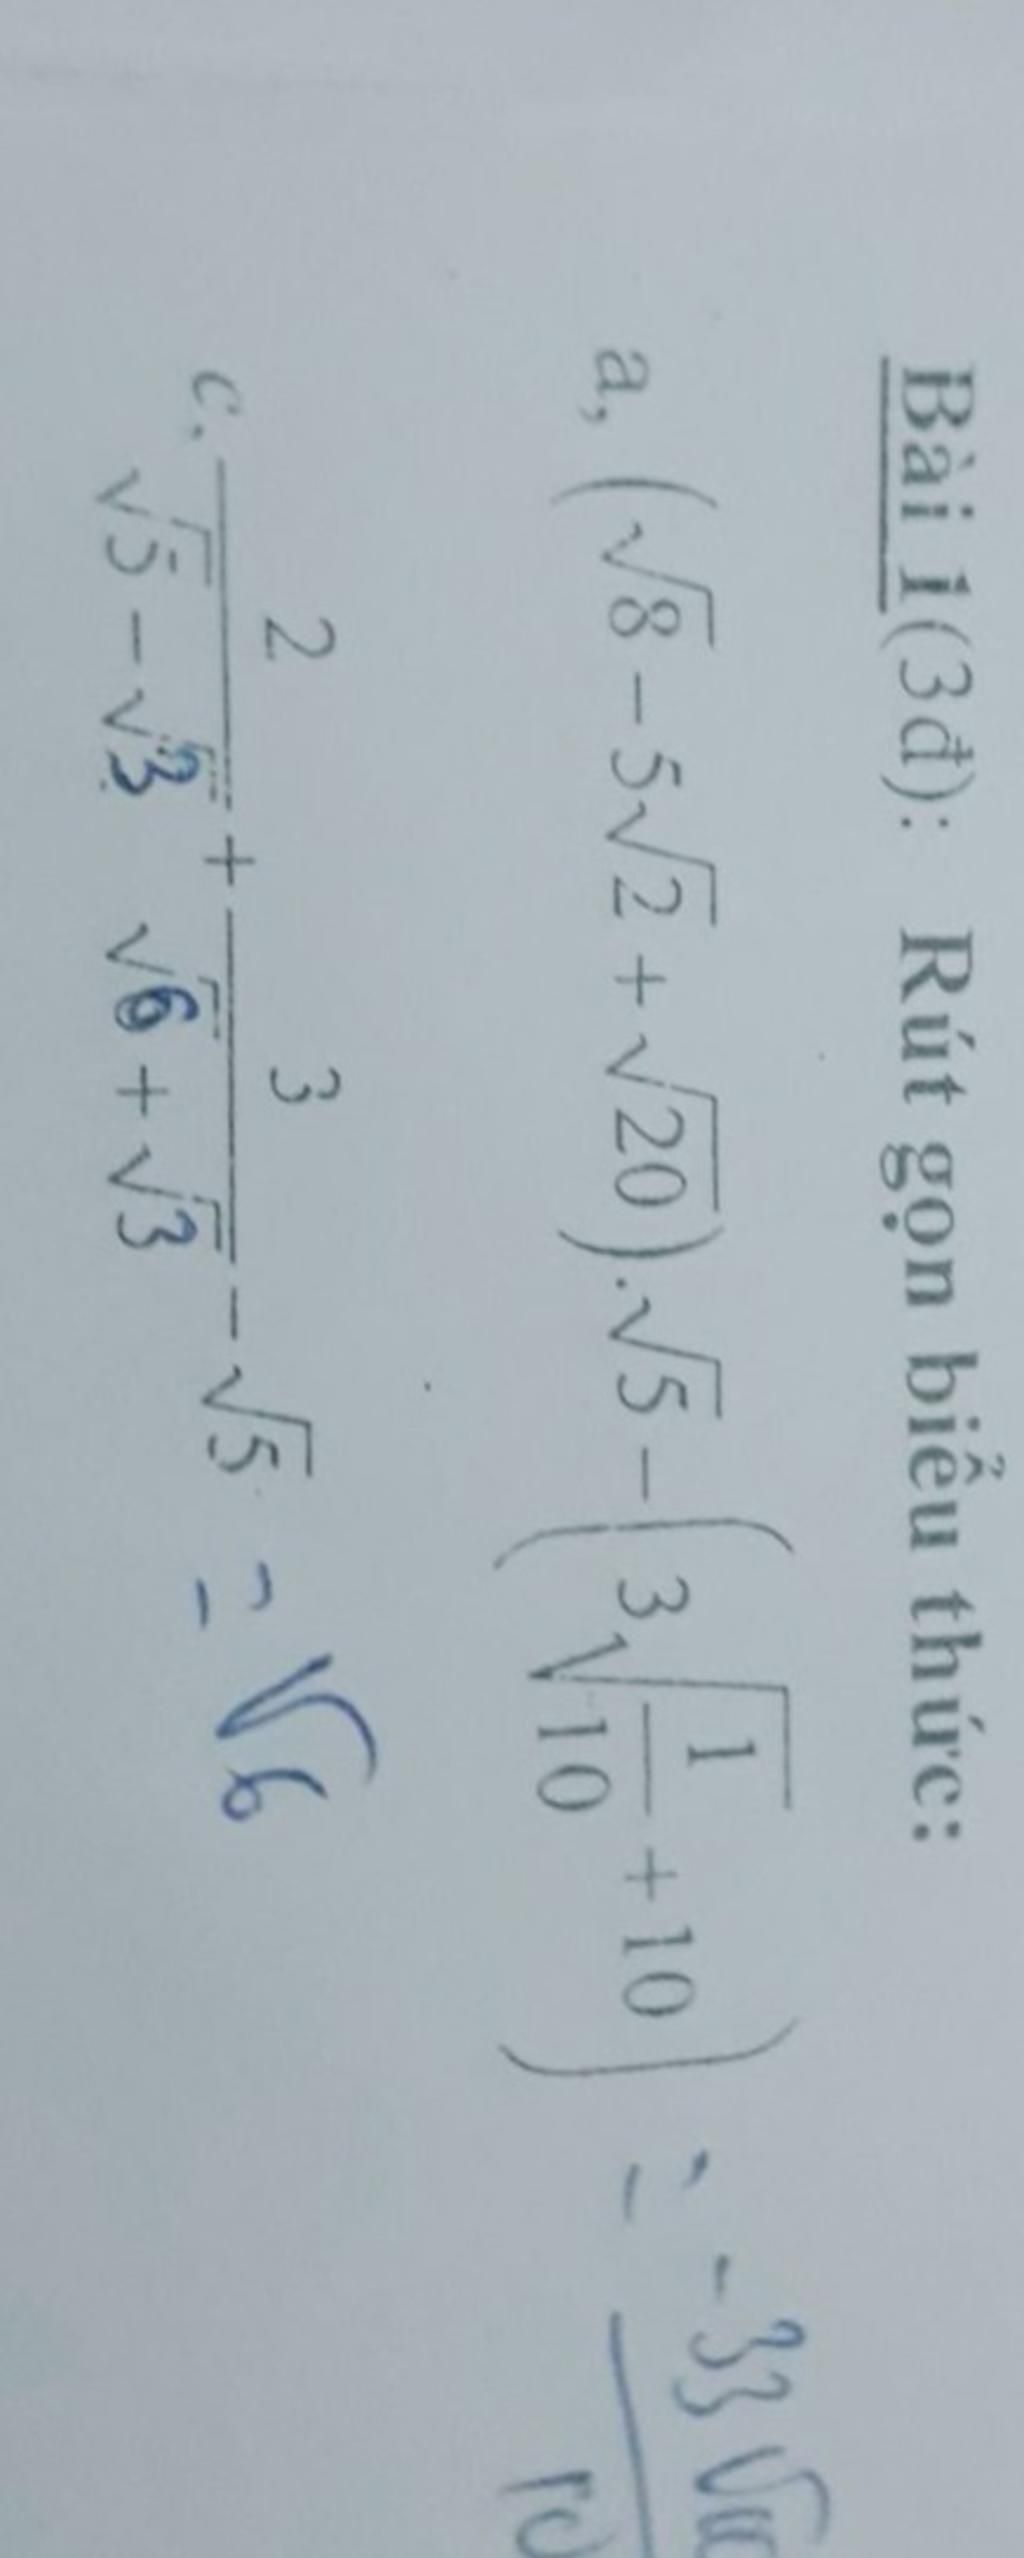 Bài 1(3đ): Rút gọn biểu thức:
a, (√8 − 5√2 + √20).√5 − (3√(1/10) + 10) = -33√10/10
c. 2/(√5 − √3) + 3/(√6 + √3) − √5 = √6